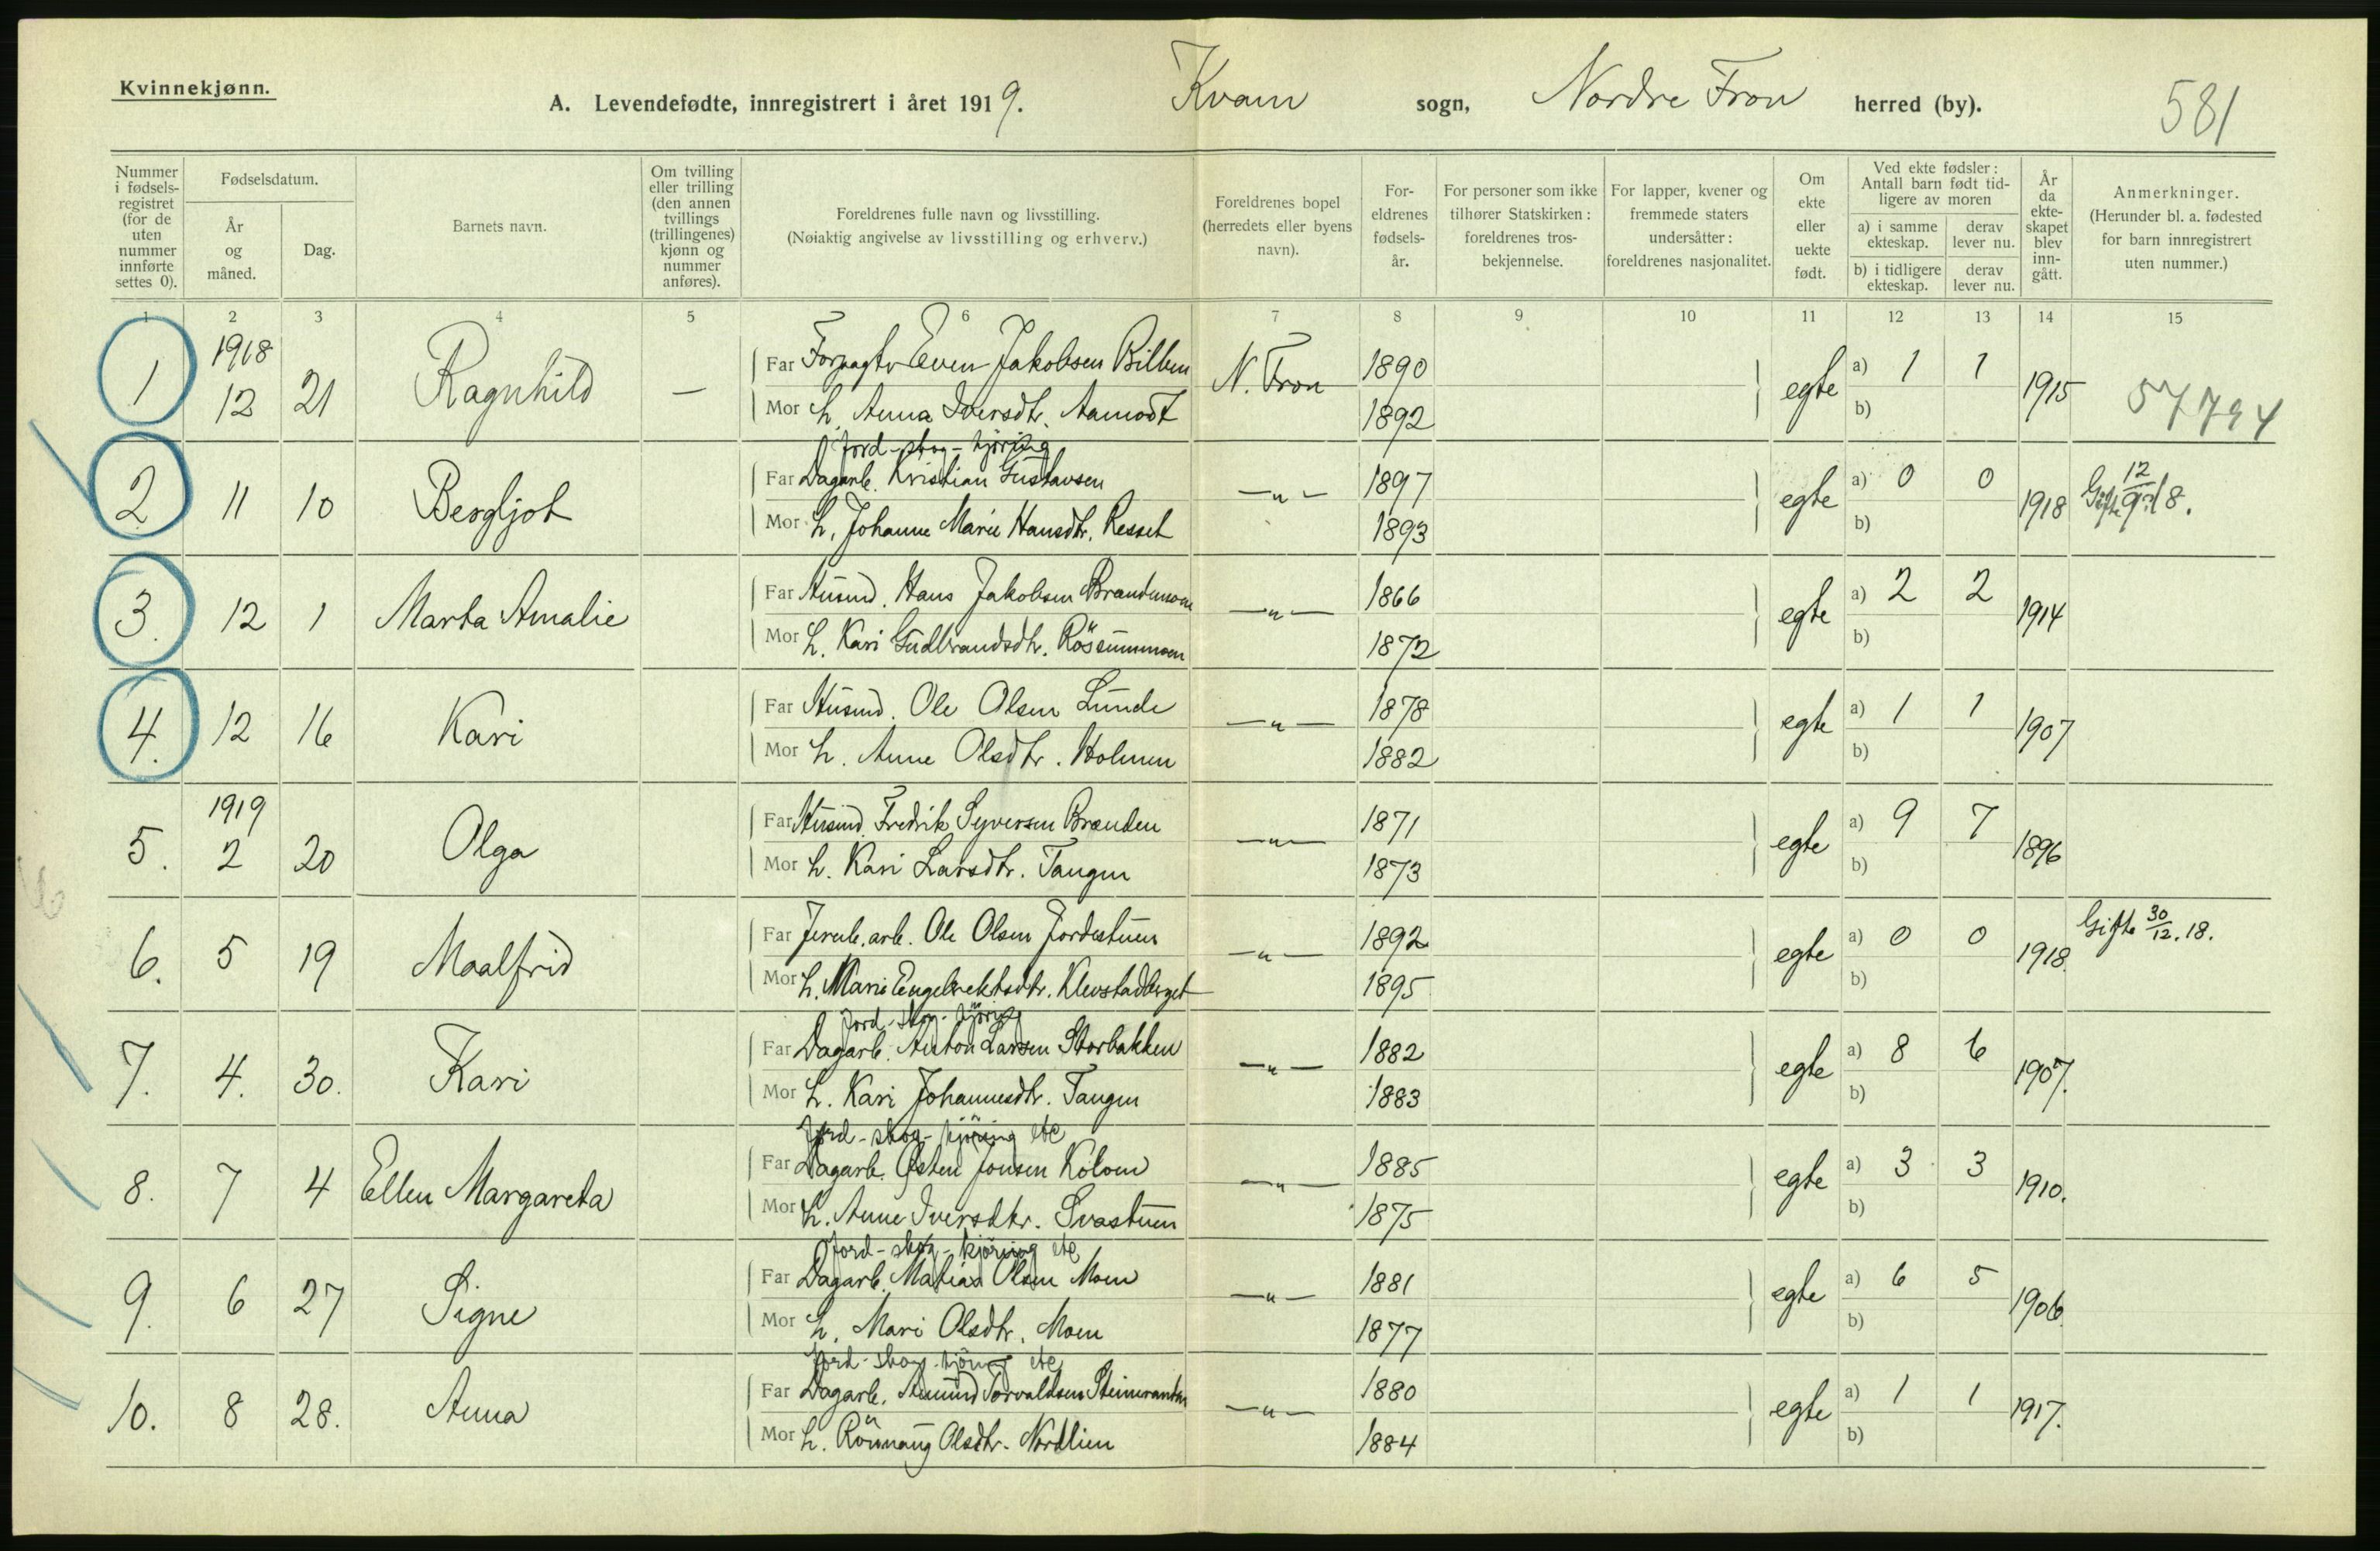 Kvinnekjønn.
A. Levendefødte, innregistrert i året 1919. Kvam sogn, Nordre Fron herred (by). 581
Nummer i fødsels-registret (for de uten nummer innførte settes 0).
Fødselsdatum.
År og måned.
Dag.
Barnets navn.
Om tvilling eller trilling (den annen tvillings (trillingenes) kjønn og nummer anføres).
Foreldrenes fulle navn og livsstilling.
(Nøiaktig angivelse av livsstilling og erhverv.)
Foreldrenes bopel (herredets eller byens navn).
For-eldrenes fødsels-år.
For personer som ikke tilhører Statskirken: foreldrenes tros-bekjennelse.
For lapper, kvener og fremmede staters undersåtter: foreldrenes nasjonalitet.
Om ekte eller uekte født.
Ved ekte fødsler: Antall barn født tid-ligere av moren
a) i samme ekteskap.
derav lever nu.
b) i tidligere ekteskap.
derav lever nu.
År da ekte-skapet blev inn-gått.
Anmerkninger.
(Herunder bl. a. fødested for barn innregistrert uten nummer.)
1 2 3 4 5 6 7 8 9 10 11 12 13 14 15
1918
1 12 21 Ragnhild —
Far Forpagter Even Jakobsen Billen N. Fron 1890 egte a) 1 1 1915 57794
Mor h. Anna Iversdtr. Aamodt 1892 b)
Jord-skog-kjöring
2 11 10 Bergljot
Far Dagarb. Kristian Gustavsen —"— 1897 egte a) 0 0 1918 Gifte 12/9 18.
Mor h. Johanne Marie Hansdtr. Resset 1893 b)
3. 12 1 Marta Amalie
Far Husmd. Hans Jakobsen Brandemoen —"— 1866 egte a) 2 2 1914
Mor h. Kari Gudbrandsdtr. Rössummoen 1872 b)
4. 12 16 Kari
Far Husmd. Ole Olsen Lunde —"— 1878 egte a) 1 1 1907
Mor h. Anne Olsdtr. Holmen 1882 b)
1919
5. 2 20 Olga
Far Husmd. Fredrik Syversen Brænden —"— 1871 egte a) 9 7 1896
Mor h. Kari Larsdtr. Tangen 1873 b)
6. 5 19 Maalfrid
Far Jernb. arb. Ole Olsen Jordestuen —"— 1892 egte a) 0 0 1918. Gifte 30/12. 18.
Mor h. Mari Engebrektsdtr. Klevstadberget 1895 b)
Jord-skog-kjöring
7. 4. 30. Kari
Far Dagarb. Anton Larsen Storbakken —"— 1882 egte a) 8 6 1907.
Mor h. Kari Johannesdtr. Tangen 1883 b)
Jord-skog-kjöring etc
8. 7 4 Ellen Margareta
Far Dagarb. Østen Jonsen Kolom —"— 1885 egte a) 3 3 1910.
Mor h. Anne Iversdtr. Svastuen 1875 b)
Jord-skog-kjöring etc
9. 6 27 Signe
Far Dagarb. Matias Olsen Moen —"— 1881 egte a) 6 5 1906
Mor h. Mari Olsdtr. Moen 1877 b)
Jord-skog-kjöring etc
10. 8 28. Anna
Far Dagarb. Amund Torvaldsen —"— 1880 egte a) 1 1 1917.
Mor h. Rönnaug Olsdtr. Nordlien 1884 b)